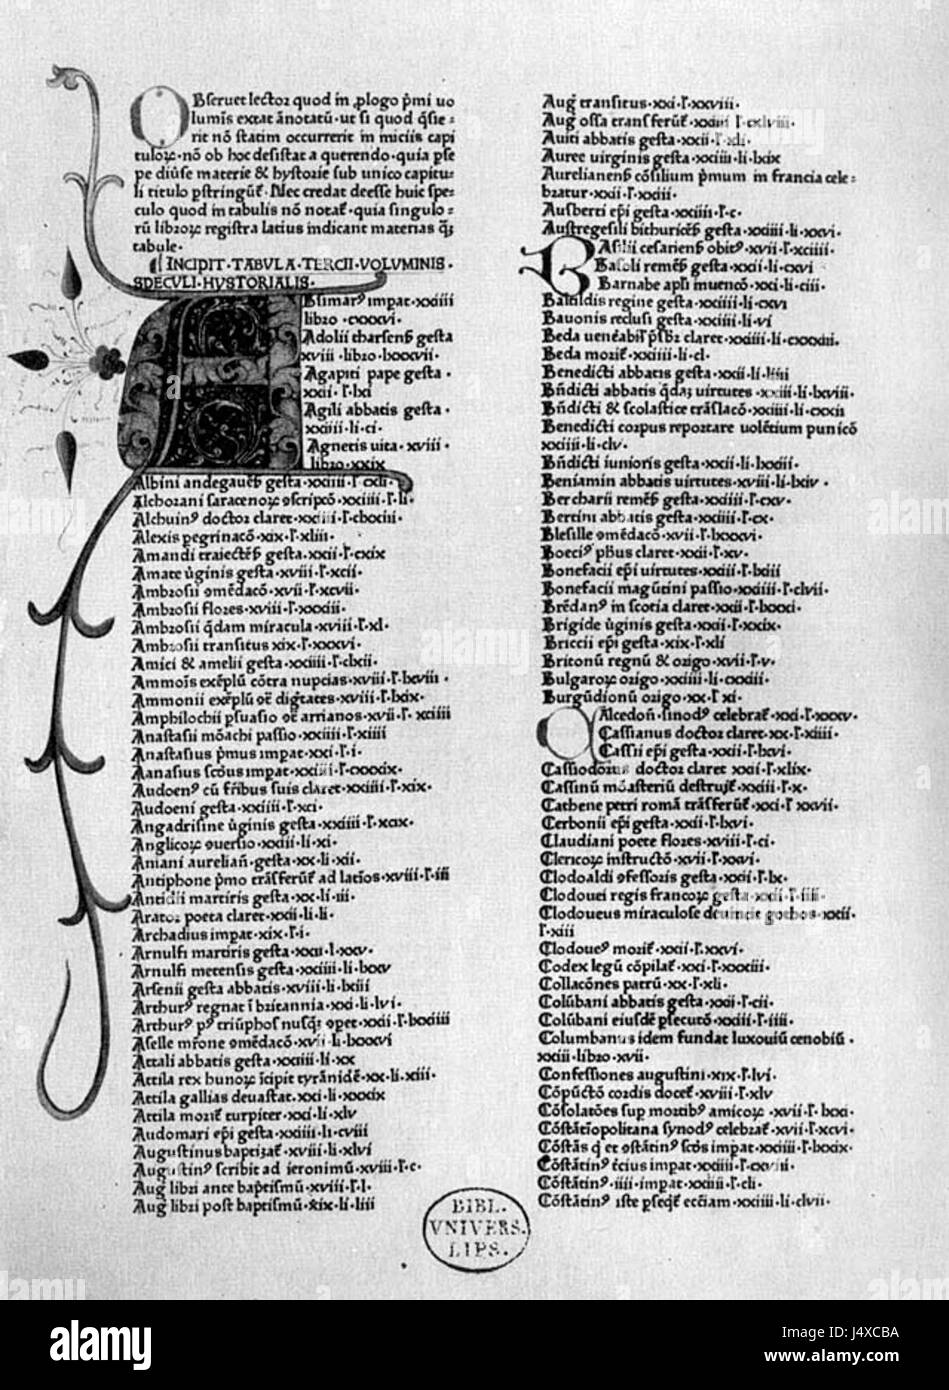 OBſeruet lector quod in ꝓlogo p̄mi uo
lumīs extat ānotatū·ut ſi quod q̄ſie⸗
rit nō ſtatim occurrerit in iniciis capi
tuloꝝ·nō ob hoc deſiſtat a querendo·quia pſe
pe diūſe materie & hyſtorie ſub unico capitu⸗
li titulo pſtringūt̄·Nec credat deeſſe huic ſpe⸗
culo quod in tabulis nō notat̄·quia ſingulo⸗
rū libroꝝ regiſtra latius indicant materias q̄ꝫ
tabule·
INCIPIT·TABVLA·TERCII·VOLVMINIS·
SPECVLI·HYSTORIALIS·
ABſimarꝰ impat·xxiiii
libro·cxxxvi·
Adolii charſenſ̄ geſta
xviii·libro·lxxxvii·
Agapiti pape geſta·
xxii·l̄·lxi
Agili abbatis geſta·
xxiiii·li·ci·
Agnetis uita·xviii·
libro·xxix
Albini andegauēſ̄ geſta·xxiiii·l̄·cxli·
Alchorani ſaracenoꝝ ꝯſcripō·xxiiii·l̄·li·
Alchuinꝰ doctor claret·xxiiii·l̄·clxxiii·
Alexis pegrinacō·xix·l̄·xliii·
Amandi traiectēſ̄ geſta·xxii·l̄·cxix
Amate ūginis geſta·xviii·l̄·xcii·
Ambroſii ꝯmēdacō·xvii·l̄·xcvii·
Ambroſii flores·xviii·l̄·xxxiii·
Ambroſii q̄dam miracula·xviii·l̄·xl·
Ambroſii tranſitus xix·l̄·xxxvi·
Amici & amelii geſta·xxiiii·l̄·clxii·
Ammoīs exēplū cōtra nupcias·xviii·l̄·lxviii·
Ammonii exēplū ꝯt̄ dig̅tates·xviii·l̄·lxix·
Amphilochii pſuaſio ꝯt̄ arrianos·xvii·l̄·xciiii
Anaſtaſii mōachi paſſio·xxiiii·l̄·xiiii
Anaſtaſius p̄mus impat·xxi·l̄·i·
Aanaſius ſcd̄us impat·xxiiii·l̄·cxxxix·
Audoenꝰ cū fr̄ibus ſuis claret·xxiiii·l̄·xix·
Audoeni geſta·xxiiii·l̄·xci·
Angadriſine ūginis geſta·xxiiii·l̄·xcix·
Anglicoꝝ ꝯuerſio·xxiii·li·xi·
Aniani aurelian̄·geſta·xx·li·xii·
Antiphone p̄mo trāſferūt̄ ad latīos·xviii·l̄·iii
Antidii martiris geſta·xx·li·iii·
Arator poeta claret·xxii·li·li·
Archadius impat·xix·l̄·i·
Arnulfi martiris geſta·xxii·l·xxv·
Arnulfi metenſis geſta·xxiiii·li·lxxv
Arſenii geſta abbatis·xviii·li·lxiii
Arthurꝰ regnat ī britannia·xxi·li·lvi·
Arthurꝰ pꝰ triūphos nuſq̄ꝫ ꝯpet·xxii·l̄·lxxiiii
Aſelle mr̄one ꝯmēdacō·xvii·li·lxxxvi
Attali abbatis geſta·xxiiii·li·xx
Attila rex hunoꝝ īcipit tyrānidē·xx·li·xiii·
Attila gallias deuaſtat·xxi·li·xxxix
Attila morit̄ turpiter·xxi·li·xlv
Audomari ep̄i geſta·xxiiii·li·cviii
Auguſtinus baptiȥat̄·xviii·li·xlvi
Auguſtinꝰ ſcribit ad ieronimū·xviii·l̄·c·
Aug̅ libri ante bap̄tiſmū·xviii·l̄·l·
Aug̅ libri poſt baptiſmū·xix·li·iiii
Aug̅ tranſitus·xxi·l̄·xxviii·
Aug oſſa tranſferūt̄·xxiiii l̄·cxlviii·
Auiti abbatis geſta·xxii·l̄·xli·
Auree uirginis geſta·xxiiii·li·lxix
Aurelianenſ̄ cōſilium p̄mum in francia cele⸗
bratur·xxii·l̄·xxiii·
Auſberti ep̄i geſta·xxiiii·l̄·c·
Auſtregeſili bithuricēſ̄ geſta·xxiiii·li·xxvi·
BAſilii ceſarienſ̄ obitꝰ·xvii·l̄·xciiii·
Baſoli remēſ̄ geſta·xxii·li·cxvi
Barnabe ap̄li inuencō·xxi·li·ciii·
Batildis regine geſta·xxiiii·li·cxvi
Bauonis recluſi geſta·xxiiii·li·vi
Beda uenēabil̄ p̄ſbr̄ claret·xxiiii·li·cxxxiii·
Beda morit̄·xxiiii·li·cl·
Benedicti abbatis geſta·xxii·li·liiii
Bn̄dicti abbatis q̄daꝫ uirtutes·xxiii·li·lxviii·
Bn̄dicti & ſcolaſtice trāſlacō·xxiiii·li·cxxii
Benedicti corpus reportare uolētium punicō
xxiiii·li·clv·
Bn̄dicti iunioris geſta·xxii·li·lxxiii·
Beniamin abbatis uirtutes·xviii·li·lxiv·
Bercharii remēſ̄ geſta·xxiiii·l̄·cxv·
Bertini abbatis geſta·xxiiii·l̄·cx·
Bleſille ꝯmēdacō·xvii·l̄·lxxxvi·
Boeciꝰ pb̄us claret·xxii·l̄·xv·
Bonefacii ep̄i uirtutes·xxiii·l̄·lxiii
Bonefacii magūtini paſſio·xxiiii·l̄·clvii·
Brēdanꝰ in ſcotia claret·xxii·l̄·lxxxi·
Brigide ūginis geſta·xxii·l̄·xxix·
Briccii ep̄i geſta·xix·l̄·xli
Britonū regnū & origo·xvii·l̄·v·
Bulgaroꝝ origo·xxiiii·li·cxxiii·
Burgūdionū origo·xx·l̄·xi·
CAlcedon̄·ſinodꝰ celebrat̄·xxi·l̄·xxxv·
Caſſianus doctor claret·xx·l̄·xiiii·
Caſſii ep̄i geſta·xxii·l̄·lxvi·
Caſſiodorus doctor claret xxii·l̄·xlix·
Caſſinū mōaſteriū deſtruit̄·xxiii·l̄·x·
Cathene petri romā trāſferūt̄·xxi·l̄ xxvii·
Cerbonii ep̄i geſta·xxii·l̄·lxvi·
Claudiani poete flores·xviii·l̄·ci·
Clericoꝝ inſtructō·xvii·l̄·xxvi·
Clodoaldi ꝯfeſſoris geſta·xxii·l̄·lx·
Clodouei regis francoꝝ geſta·xxii·l̄·iiii·
Clodoueus miraculoſe deuincit gothos·xxii·
l̄·xiii
Clodoueꝰ morit̄·xxii·l̄·xxvi·
Codex legū cōpilat̄·xxi·l̄·xxxiii·
Collacōnes patrū·xx·l̄·xli·
Colūbani abbatis geſta·xxii·l̄·cii·
Colūbani eiuſdē pſecutō·xxiii·l̄·iiii·
Columbanus idem fundat luxouiū cenobiū·
xxiii·libro·xvii·
Confeſſiones auguſtini·xix·l̄·lvi·
Cōpūctō cordis docet̄·xviii·l̄·xlv
Cōſolatōes ſup mortibꝰ amicoꝝ·xvii·l̄·lxxi·
Cōſtātīopolitana ſynodꝰ celebrat̄·xvii·l̄·xcvi·
Cōſtās q̄ et ꝯſtātinꝰ ſcd̄s impat·xxiiii·l̄·lxxix·
Cōſtātinꝰ t̄cius impat·xxiiii·l̄·cxviii·
Cōſtātinꝰ·iiii·impat·xxiiii·l̄·cli·
Cōſtātinꝰ iſte pſeqt̄ eccl̄iam·xxiiii·li·clvii·
BIBL.
VNIVERS.
LIPS.
alamy
Image ID: J4XCBA
www.alamy.com